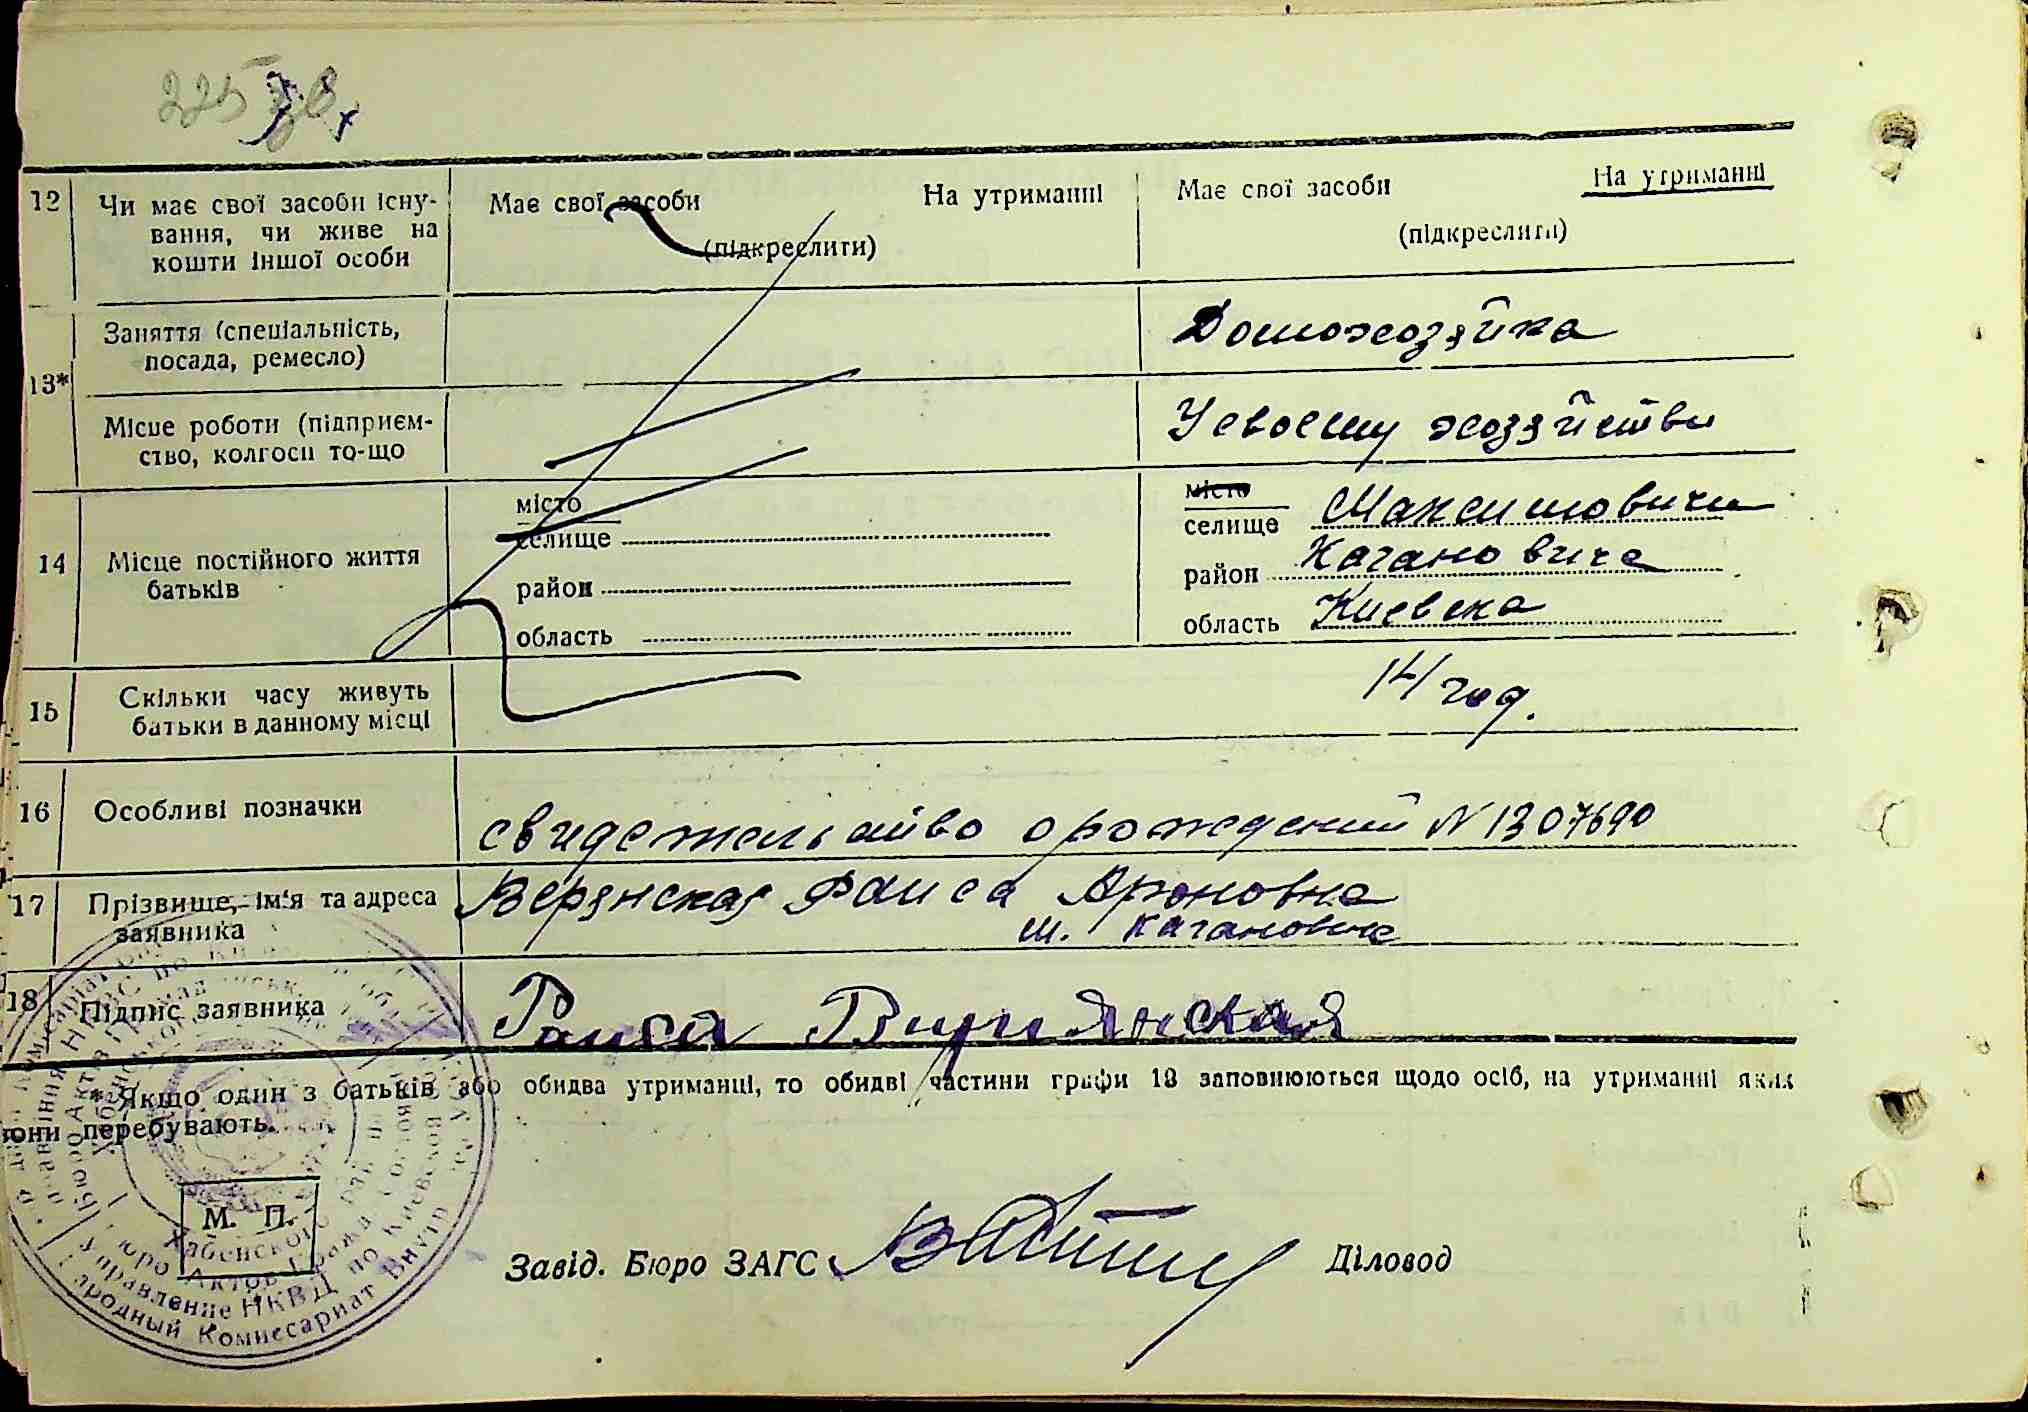 225 зв.
12 Чи має свої засоби існування, чи живе на кошти іншої особи
Має свої засоби На утриманні
(підкреслити)
Має свої засоби На утриманні
(підкреслити)
13*
Заняття (спеціальність,
посада, ремесло)
Домохозяйка
Місце роботи (підприєм-
ство, колгосп то-що
У своему хозяйстви
14 Місце постійного життя
батьків
місто
селище
район
область
місто
селище Максимовичи
район Кагановича
область Киевска
15 Скільки часу живуть
батьки в данному місці
14 год.
16 Особливі позначки
свидетельство о рождений N 1307690
17 Прізвище, ім'я та адреса
заявника
Верянская Раиса Ароновна
м. Кагановича
18 Підпис заявника
Раиса Вирянская
* Якщо один з батьків або обидва утриманці, то обидві частини графи 13 заповнюються щодо осіб, на утриманні яких
вони перебувають.
М. П.
Завід. Бюро ЗАГС
Діловод
Хабенского
Управление НКВД по Киевской
Комиссариат Внутр